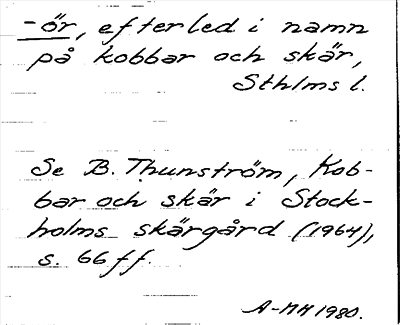 -ör, efterled i namn
på kobbar och skär,
Sthlms l.
Se B. Thunström, Kob-
bar och skär i Stock-
holms skärgård (1964),
s. 66 ff.
A-MH 1980.